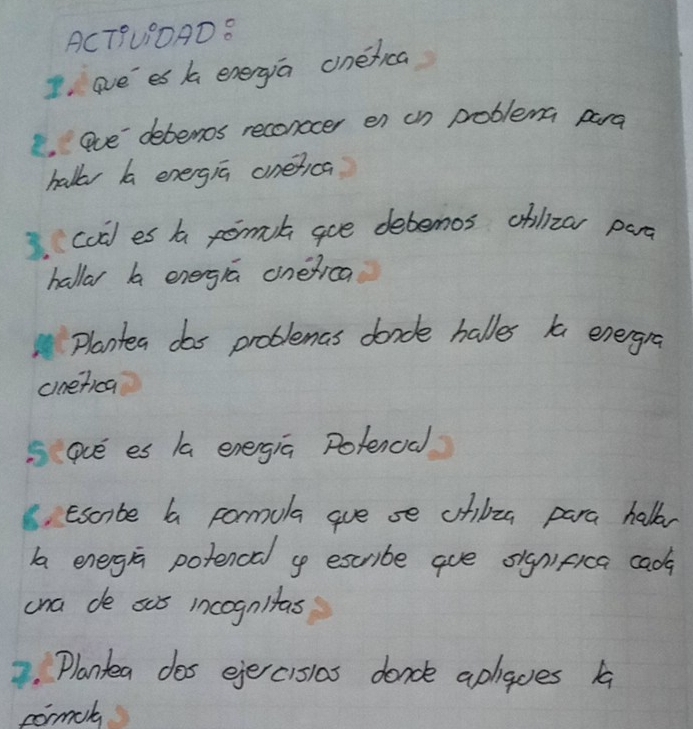 ACTIVIDAD:
1. ¿Qué es la energía cinética?
2. ¿Qué debemos reconocer en un problema para
hallar la energía cinética?
3. ¿Cuál es la fórmula que debemos utilizar para
hallar la energía cinética?
4 ¿Plantea dos problemas donde halles la energía
cinética?
5 ¿Qué es la energía Potencial?
6. ¿Escribe la formula que se utiliza para hallar
la energía potencial y escribe que significa cada
una de sus incognitas?
7. ¿Plantea dos ejercisios donde apliques la
fórmula?